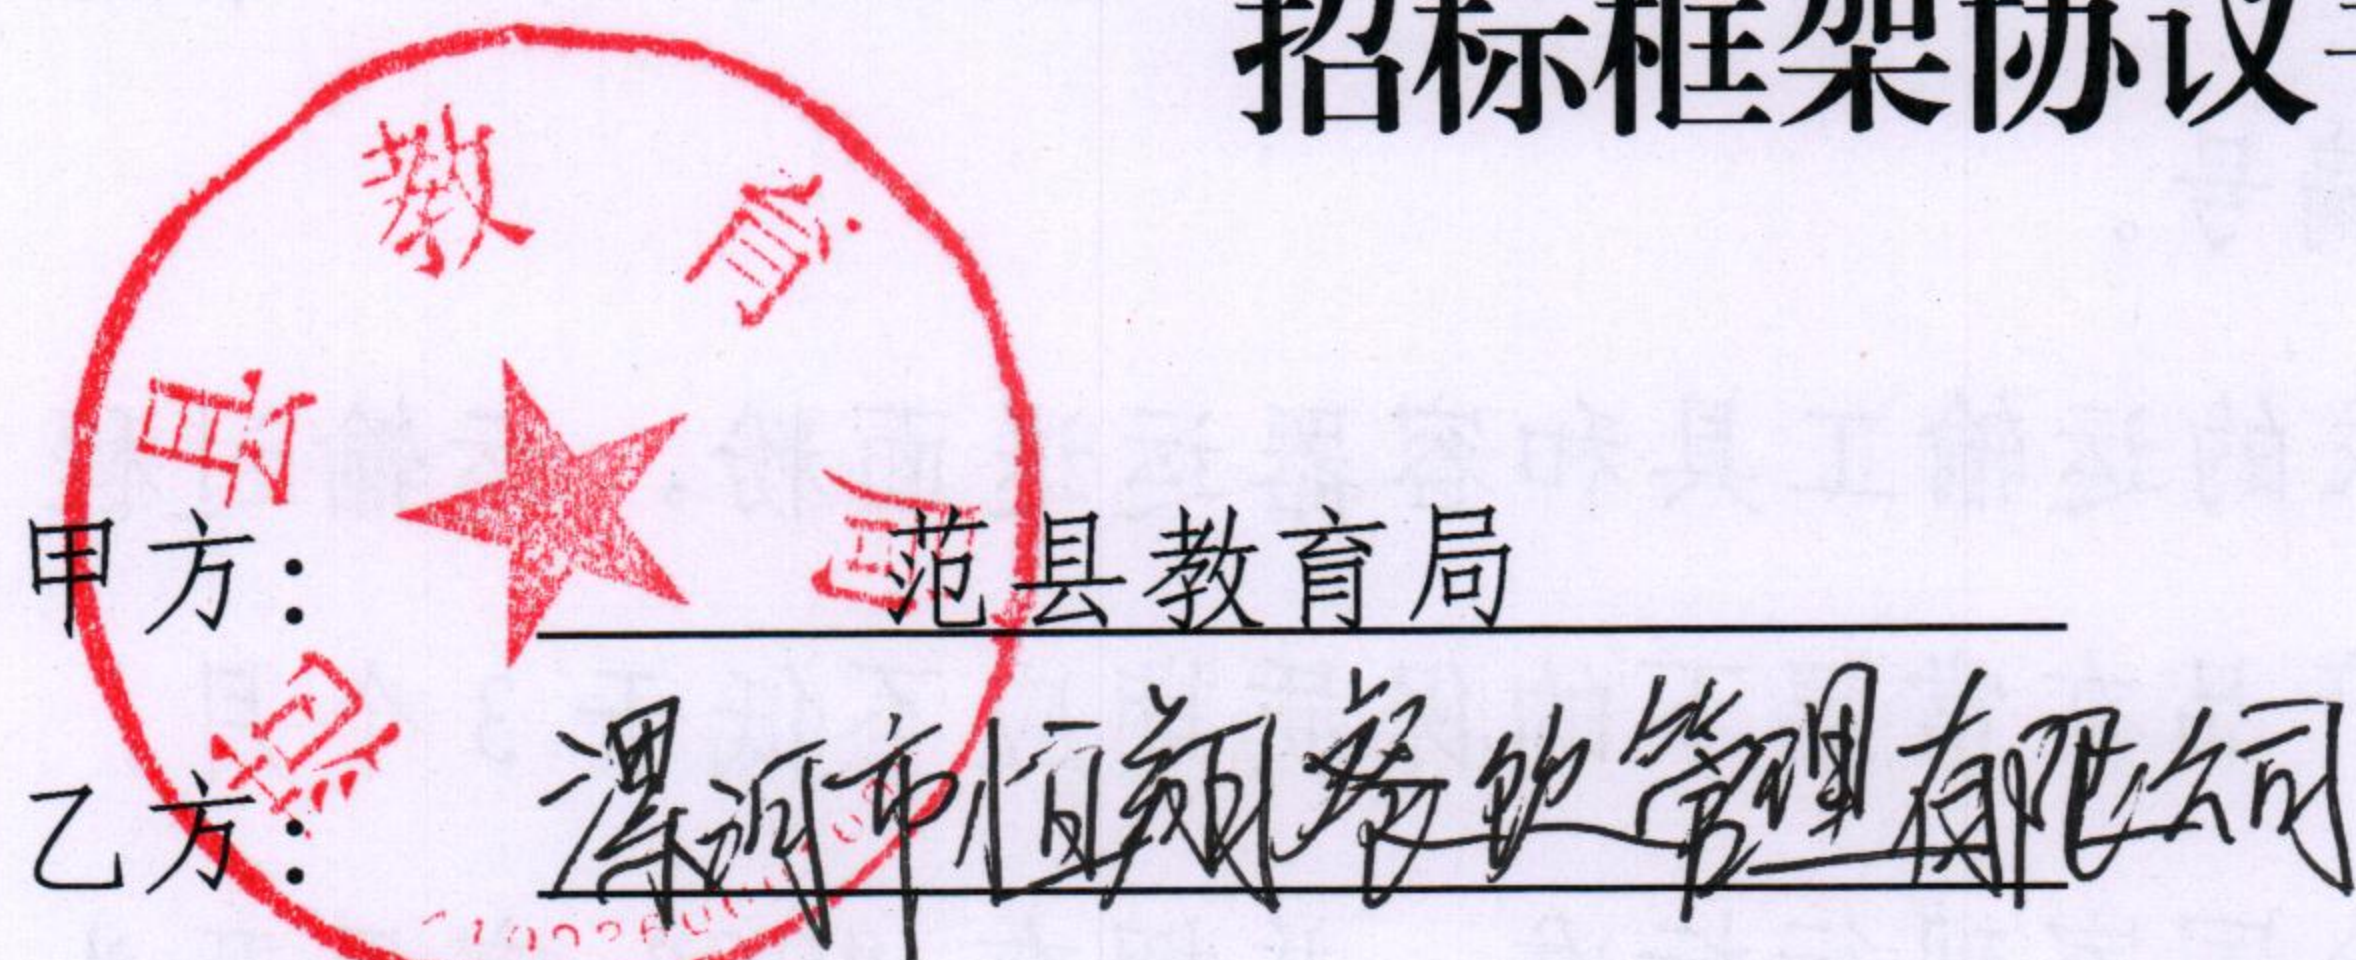 招标框架协议
范县教育局
甲方：范县教育局
乙方：漯河市恒翔餐饮管理有限公司